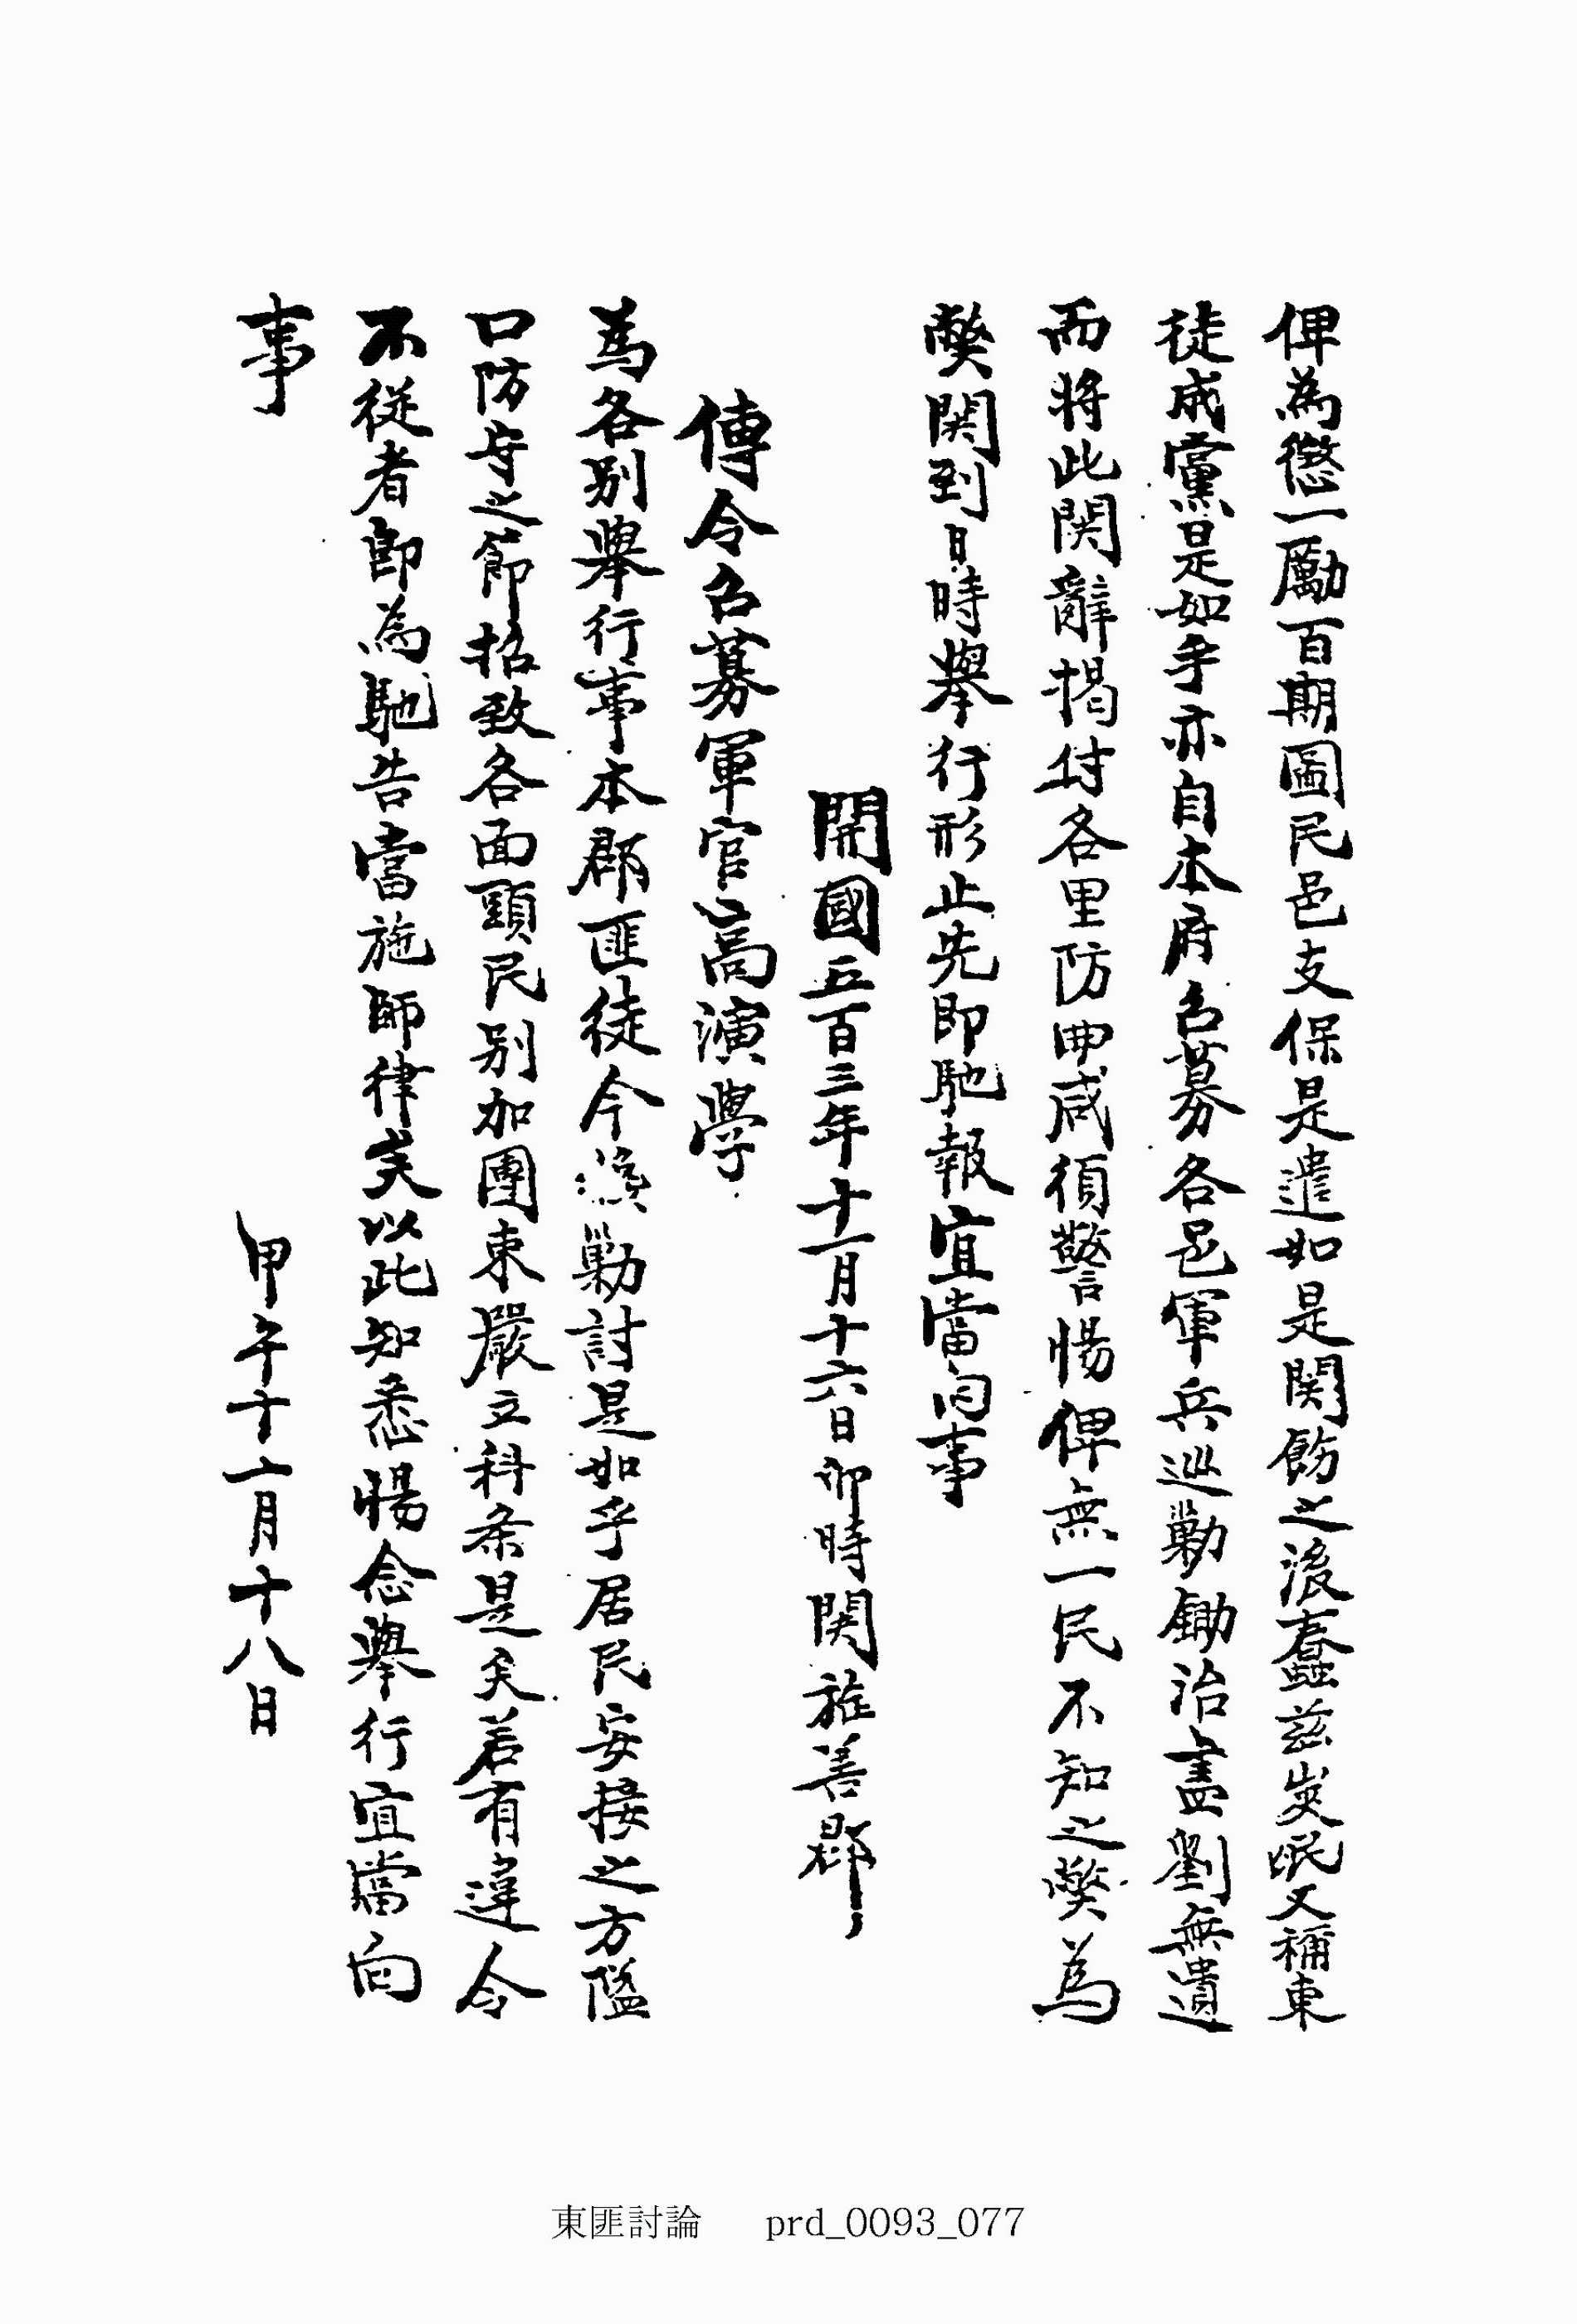 俾爲懲一勵百期圖民邑支保是遣如是関飭之後蠢玆災氓又稱東
徒成黨是如乎亦自本府召募各邑軍兵巡勦鋤治盡劉無遺
而將此関辭揭付各里防曲咸須警惕俾無一民不知之獘爲
獘関到日時擧行形止先卽馳報宜當向事
開國五百三年十一月十六日卯時関旌善郡
傳令召募軍官高演學
爲各別擧行事本郡匪徒今演勦討是如乎居民安接之方隘
口防守之節招致各面頭民別加團束嚴立科条是矣若有違令
不從者卽為馳告當施師律矣以此知悉惕念擧行宜當向
事
甲午十一月十八日
東匪討論 prd_0093_077